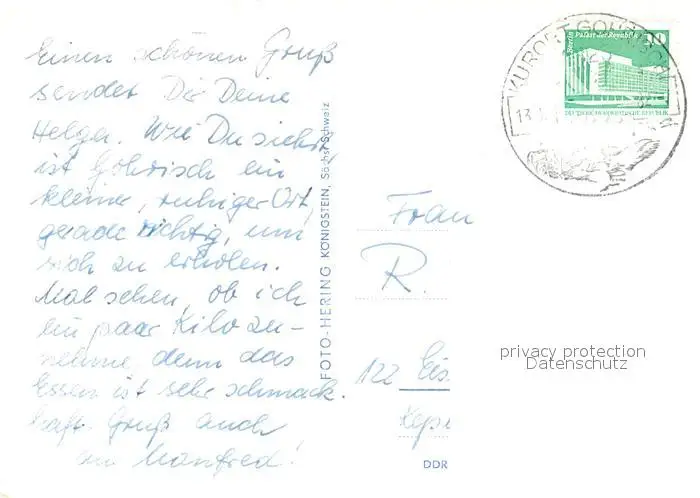 Einen schönen Gruß
sendet Dir Deine
Helga. Wie Du siehst,
ist Gohrisch ein
kleiner, ruhiger Ort,
gerade richtig, um
sich zu erholen.
Mal sehen, ob ich
ein paar Kilo zu-
nehme, denn das
Essen ist sehr schmack-
haft. Gruß auch
an Manfred!
FOTO-HERING KÖNIGSTEIN, Sächs. Schweiz
KURORT GOHRISCH
Berlin Palast der Republik
DEUTSCHE DEMOKRATISCHE REPUBLIK
Frau
R.
122 Eis
DDR
privacy protection
Datenschutz